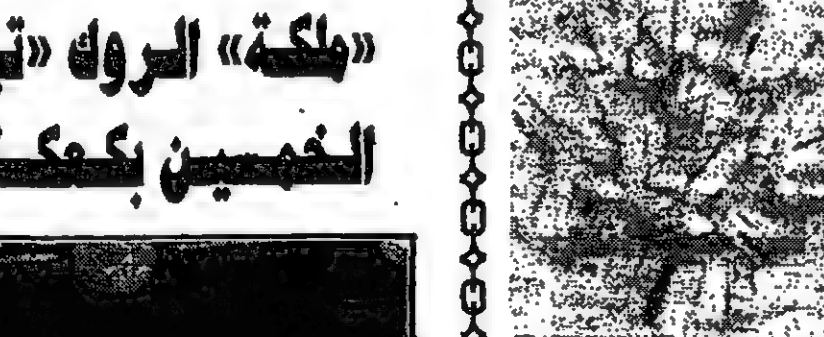 «ملكة» الروك «تـ
الخمسين بكعكـ